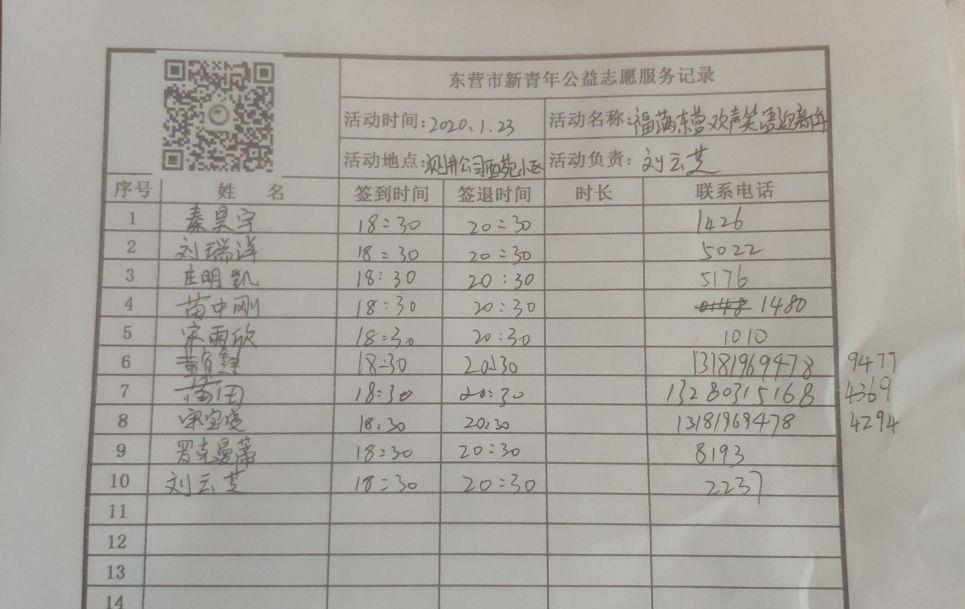 东营市新青年公益志愿服务记录
活动时间:2020.1.23 活动名称:福满东营欢声笑语迎新年
活动地点:测井公司西苑小区 活动负责:刘云芝
序号 姓 名 签到时间 签退时间 时长 联系电话
1 秦昊宇 18:30 20:30 1426
2 刘瑞洋 18:30 20:30 5022
3 庄明凯 18:30 20:30 5176
4 苗中刚 18:30 20:30 1480
5 宋雨欣 18:30 20:30 1010
6 18:30 20:30 13181969478 9477
7 苗田 18:30 20:30 13280315168 4369
8 18:30 20:30 13181969478 4294
9 罗克曼蒂 18:30 20:30 8193
10 刘云芝 18:30 20:30 2237
11
12
13
14